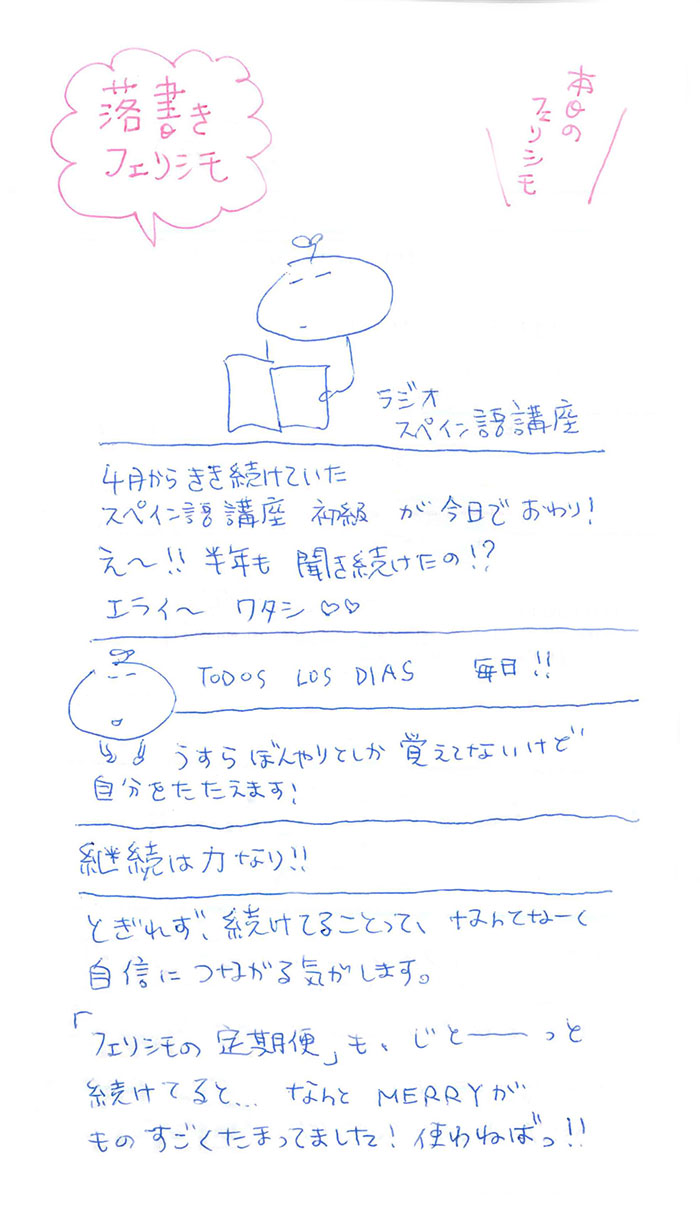 落書き
フェリシモ
本日の
フェリシモ
ラジオ
スペイン語講座
4月からきき続けていた
スペイン語講座 初級 が今日でおわり!
え〜!! 半年も 聞き続けたの!?
エライ〜 ワタシ♡♡
TODOS LOS DIAS 毎日!!
うすらぼんやりとしか覚えてないけど
自分をたたえます!
継続は力なり!!
とぎれず、続けてることって、なんてなーく
自信につながる気がします。
「フェリシモの定期便」も、じとーーっと
続けてると… なんと MERRYが
ものすごくたまってました! 使わねばっ!!